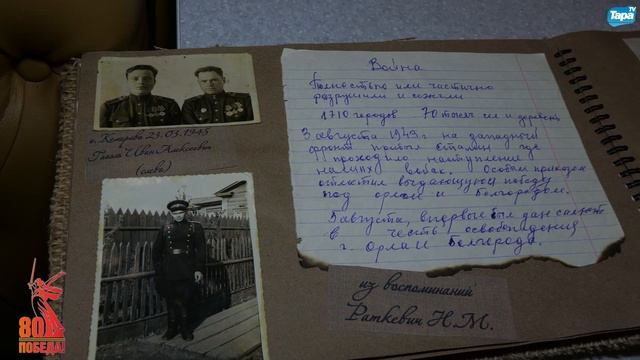 Tapa TV
Война
Полностью или частично
разрушили и сожгли
1710 городов 70 тысяч сел и деревень
3 августа 1943 г на западный
фронт прибыл Сталин где
проходило наступление
наших войск. Особым приказом
отметил выдающуюся победу
под орлом и Белгородом.
5 августа, впервые был дан салют
в честь освобождения
г. Орла и Белгорода.
23.03.1945
Иван Алексеевич
(слева)
из воспоминаний
Раткевич Н.М.
80
ПОБЕДА!